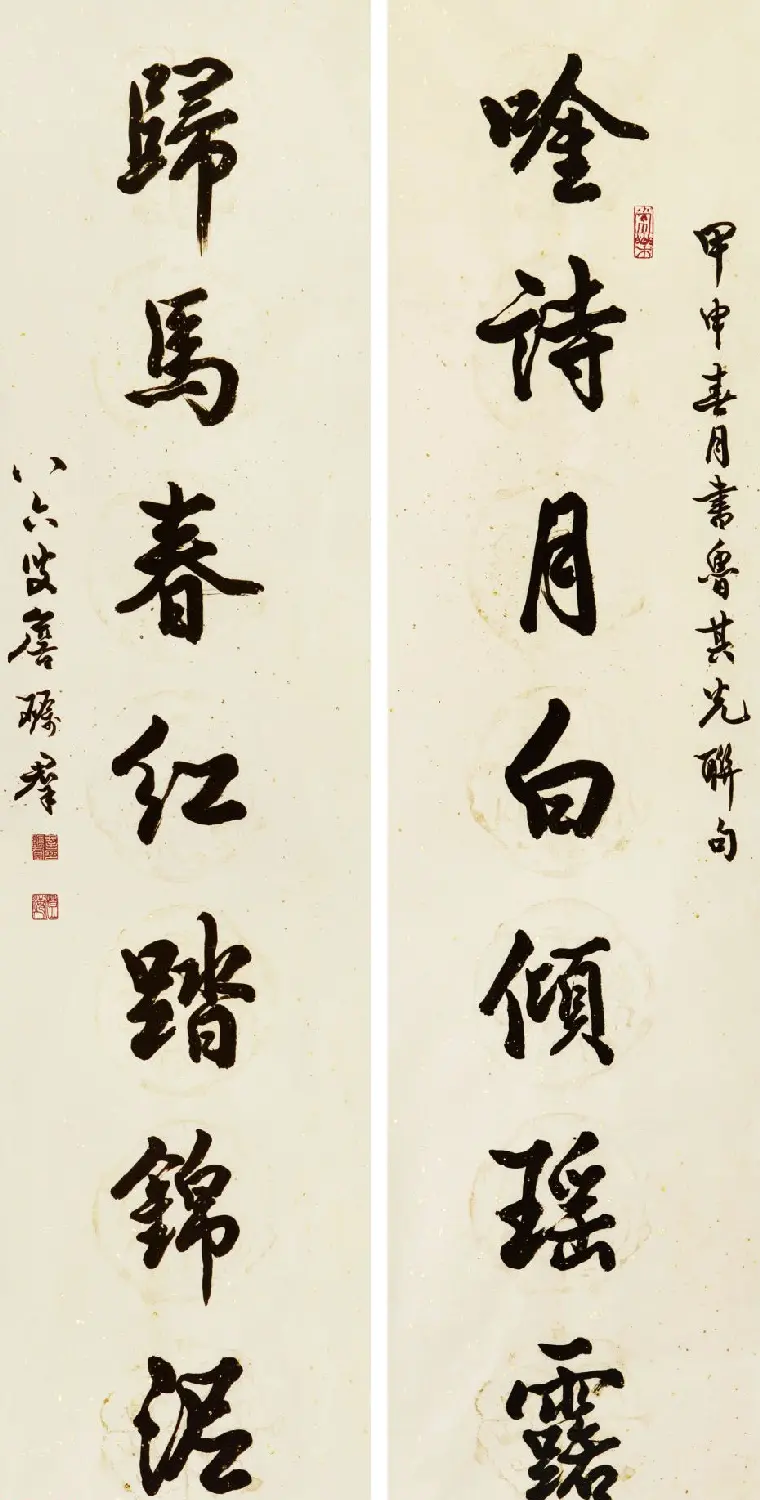 甲申春月書魯其光聯句
唫詩月白傾瑶露
歸馬春紅踏錦泥
八六叟詹礪羣